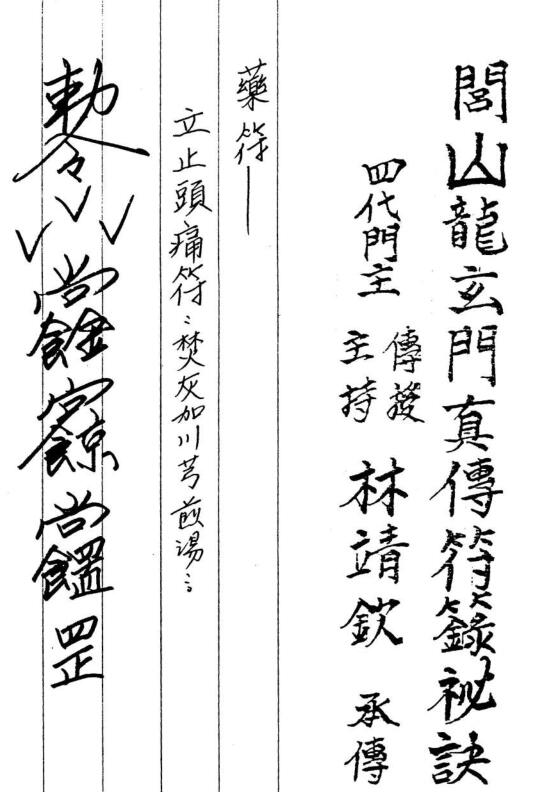 閭山龍玄門真傳符籙祕訣
四代門主 傳授 主持 林靖欽 承傳
藥符——
立止頭痛符：焚灰加川芎煎湯：
敕令
罡